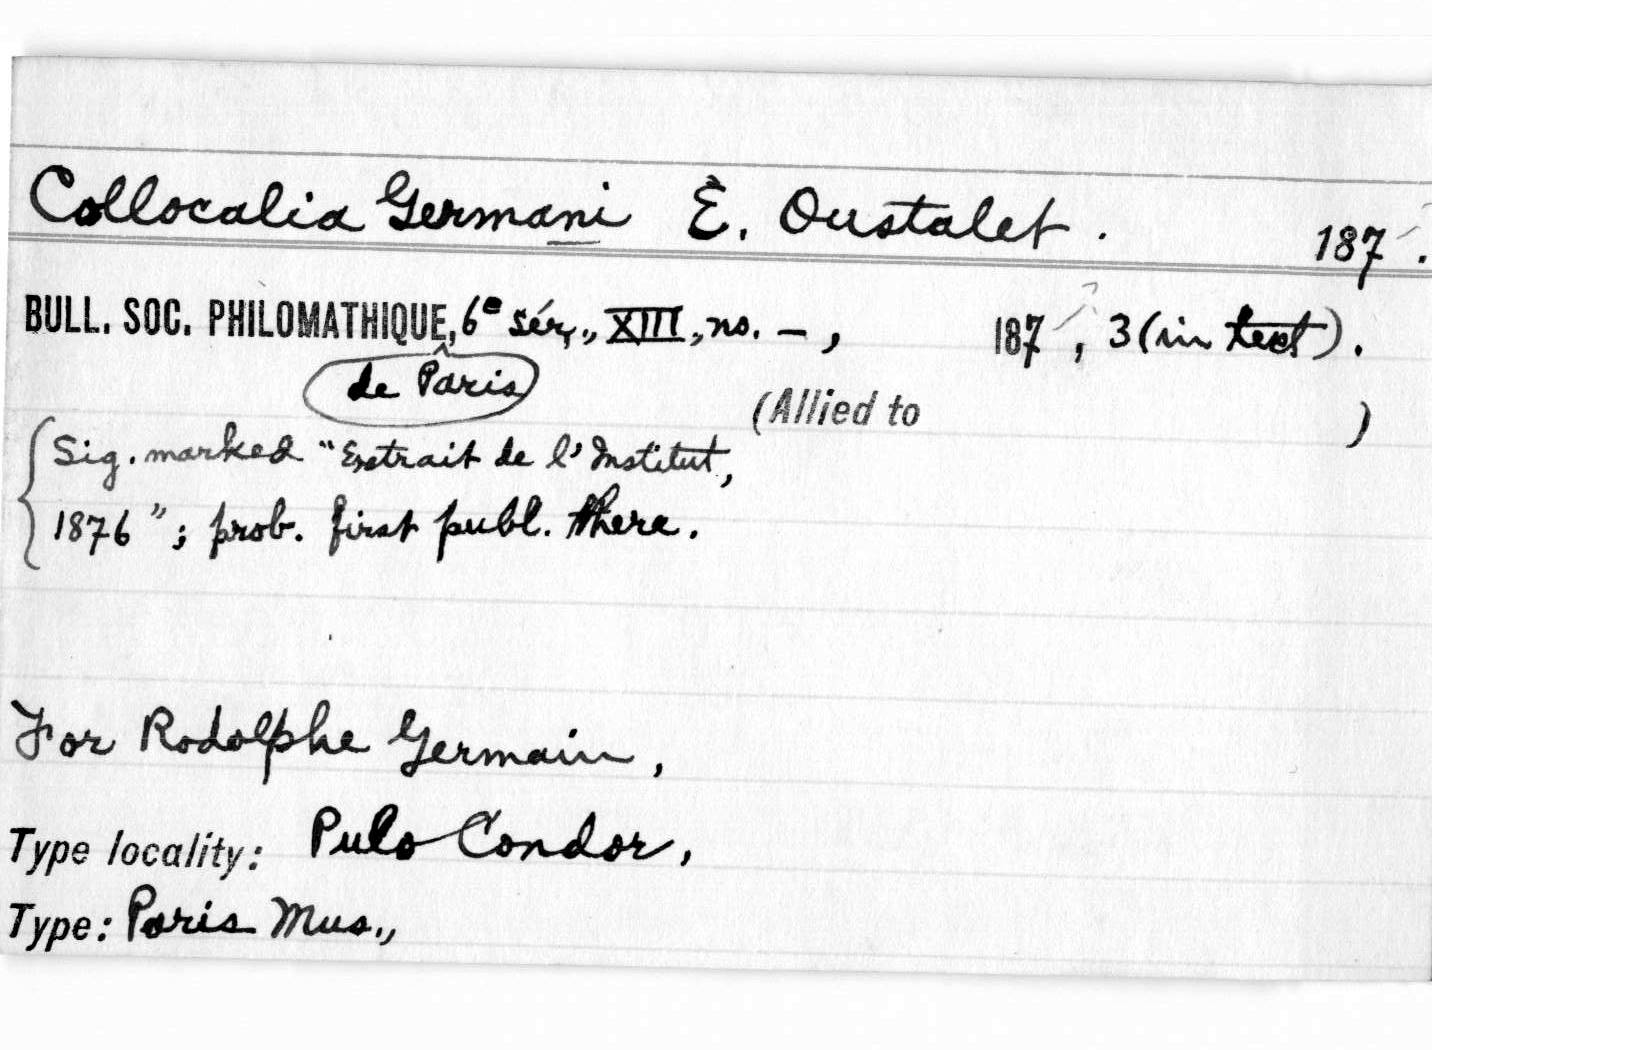 Collocalia Germani É. Oustalet. 187 .
BULL. SOC. PHILOMATHIQUE, 6e sér., XIII, no. – , 187 , 3 (in text).
de Paris
(Allied to )
Sig. marked "Extrait de l'Institut,
1876"; prob. first publ. there.
For Rodolphe Germain,
Type locality: Pulo Condor,
Type: Paris Mus.,